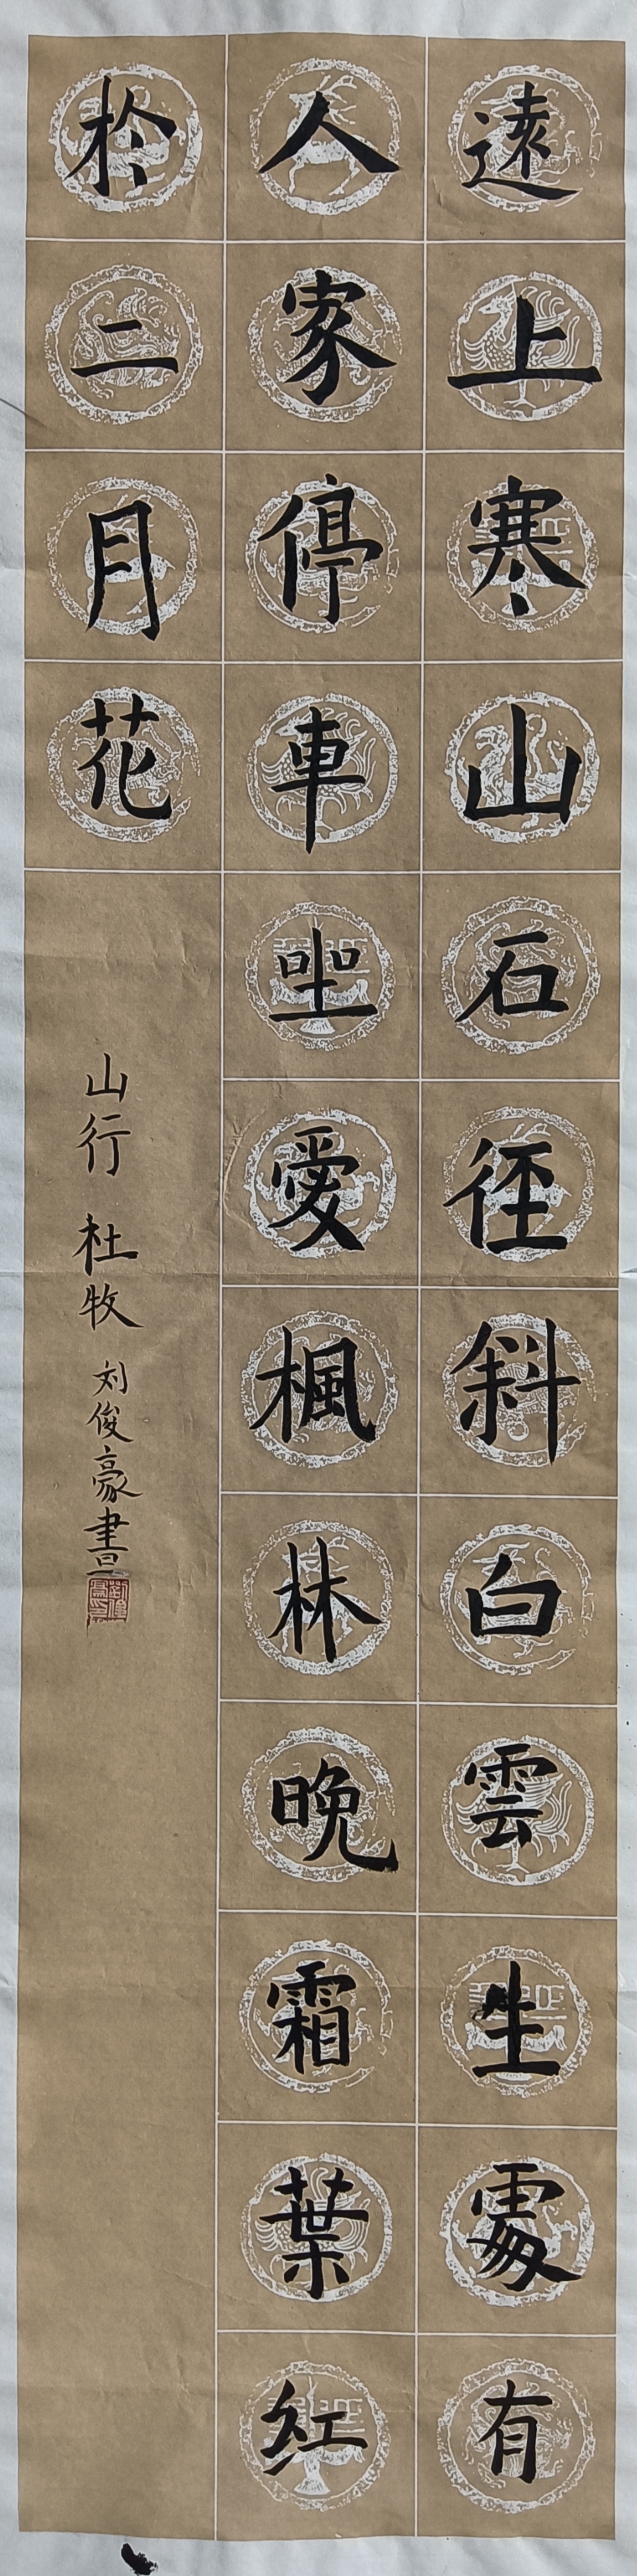 遠上寒山石徑斜白雲生處有
人家停車坐愛楓林晚霜葉紅
於二月花
山行 杜牧 刘俊豪書